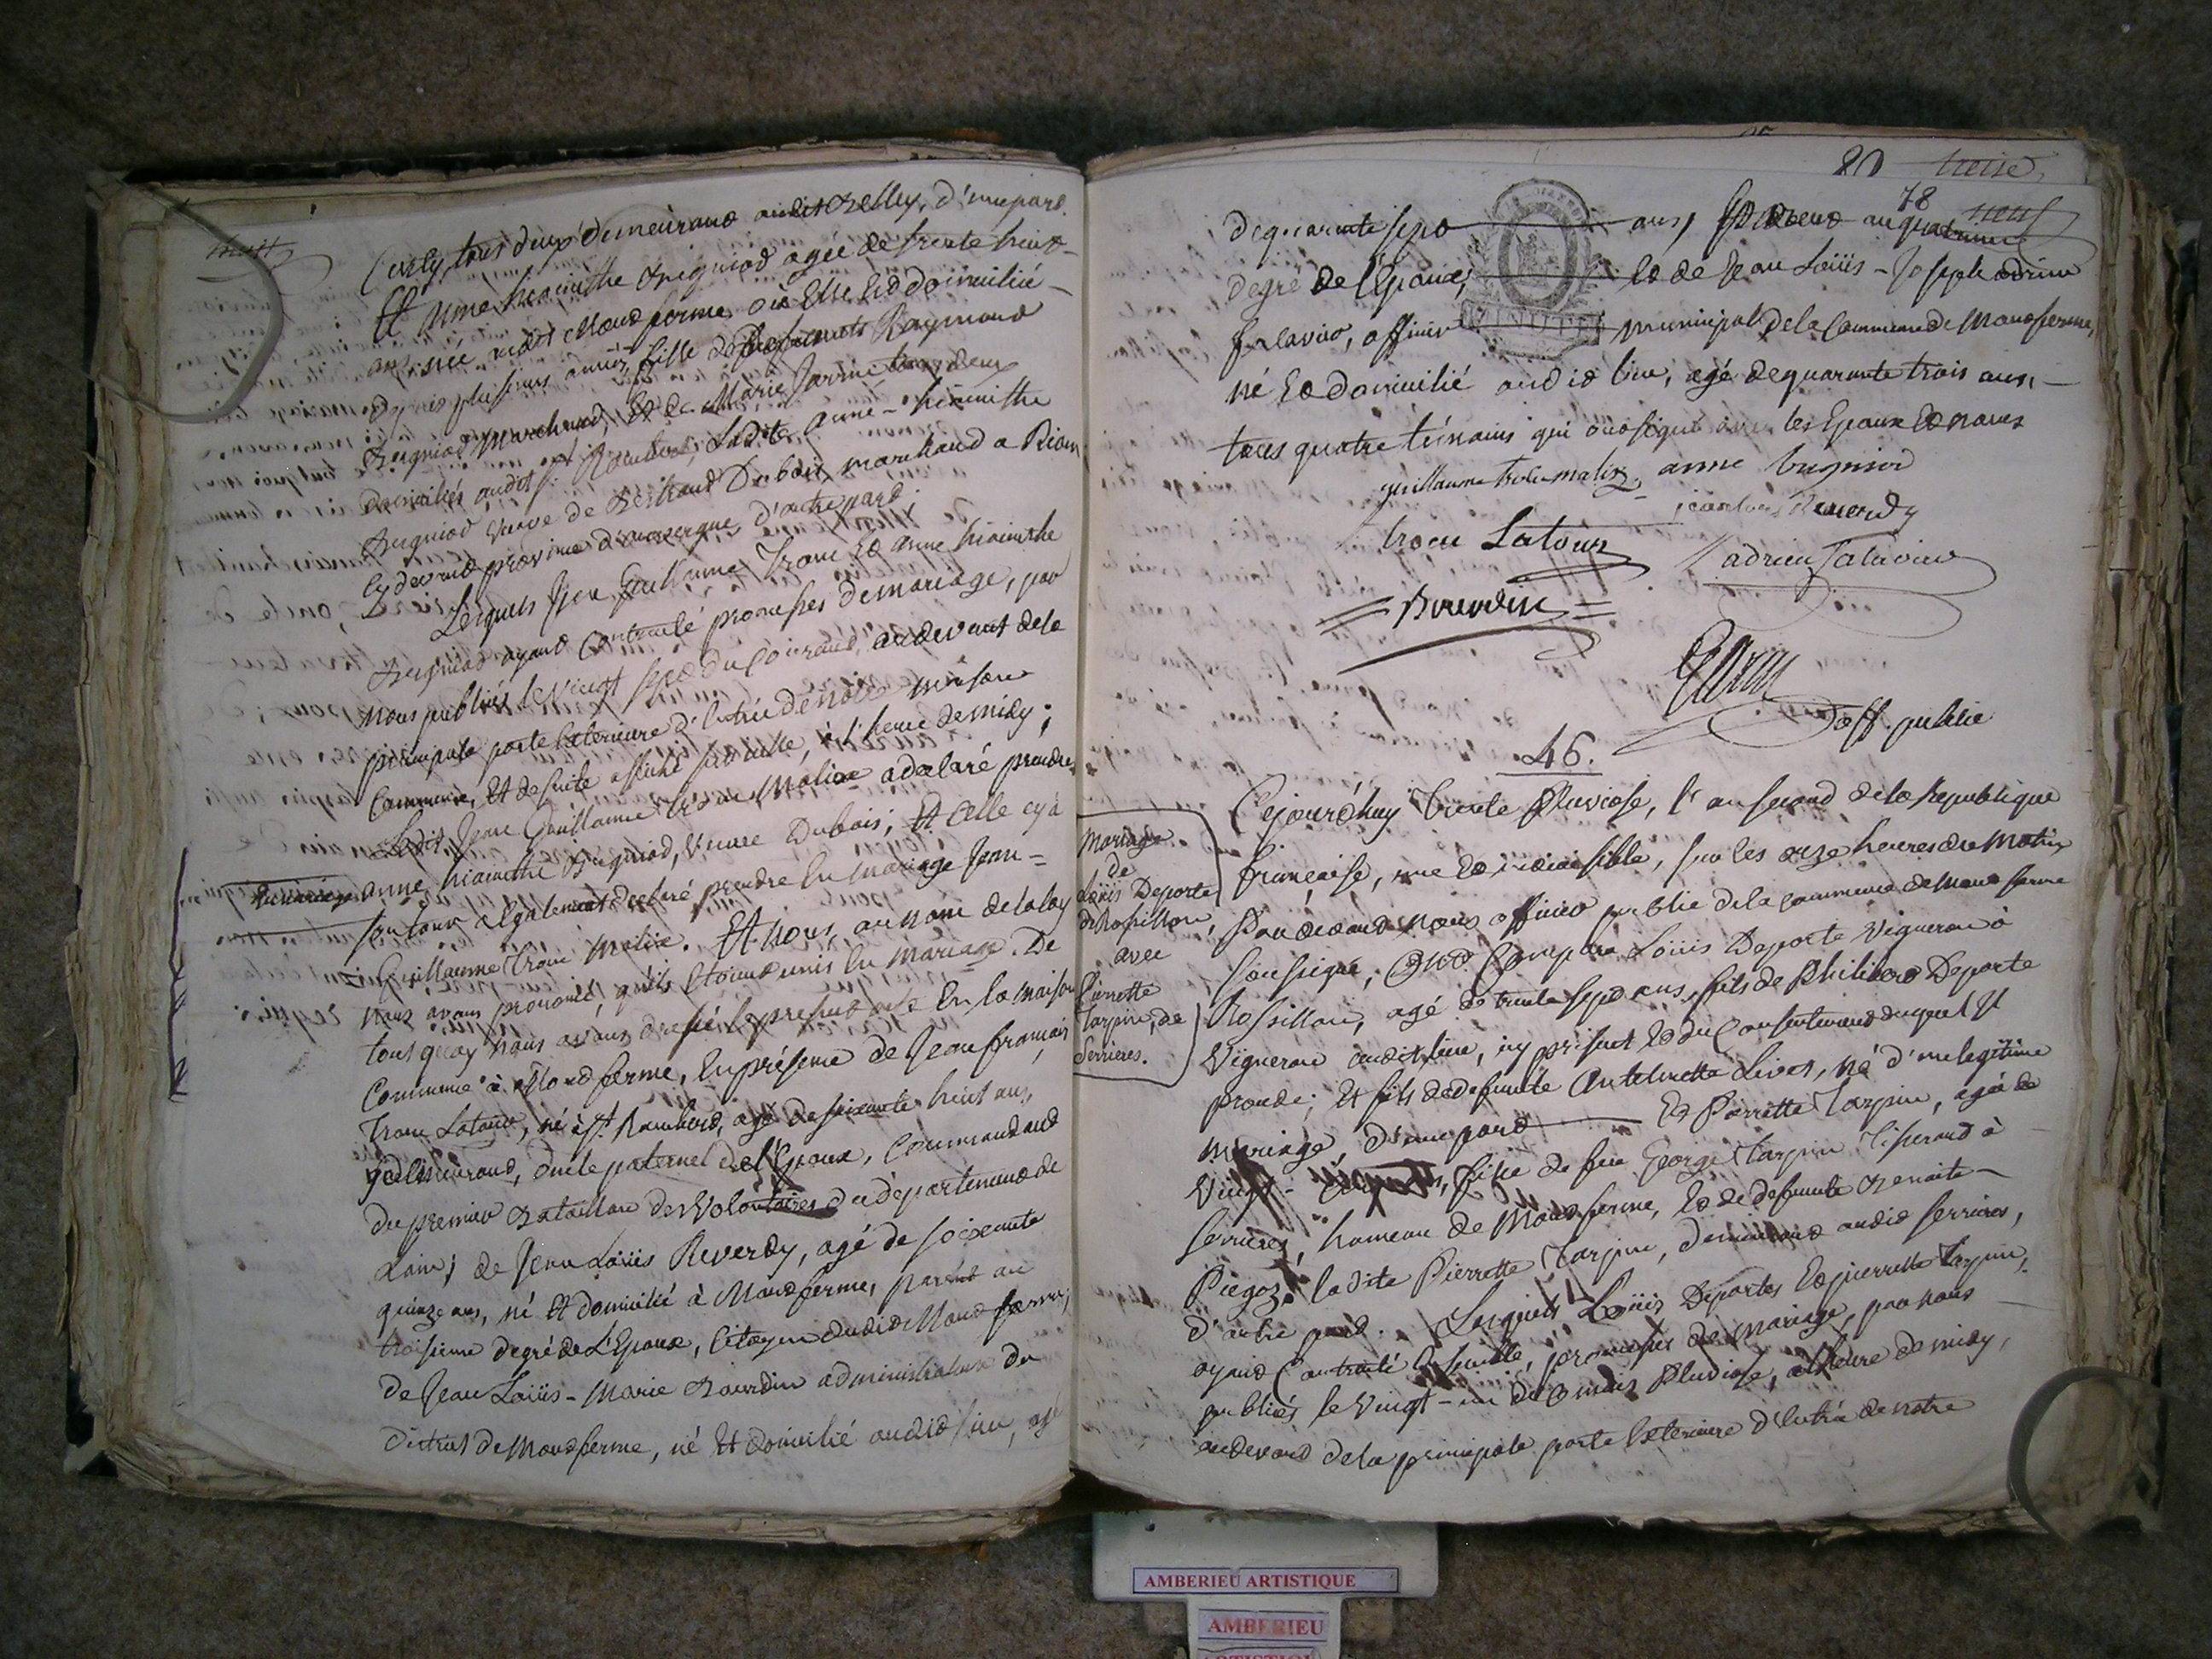 huit
Curty, tous deux demeurant audit Belley, d'une part.
Et anne hiacinthe Brugniod agée de trente huit
ans, née audit Montferme où Elle Est domiciliée
depuis plusieurs années, fille de defunts Raymond
Brugniod Marchand, Et de Marie Jarrin tous deux
domiciliés audit St. Rambert, Ladite anne-hiacinthe
Brugniod veuve de Bertrand Dubois, marchand a Riom
cy devant province d'auvergne, d'autre part.
Lesquels Jean Guillaume Trocu Et anne hiacinthe
Brugniod ayant Contracté promesses de mariage, par
nous publiés le vingt sept du Courant, audevant de la
principale porte Exterieure d'Entrée de nôtre maison
Commune, Et de suite affiché en icelle, à l'heure de midy;
Ledit Jean Guillaume Trocu Malix a declaré prendre
En mariage anne hiacinthe Brugniod, veuve Dubois; Et Celle cy à
son tour a Egalement declaré prendre En mariage Jean-
Guillaume Trocu Malix. Et nous, au nom de la loy
nous avons prononcé, qu'ils Etoient unis En mariage. De
tout quoy nous avons dressé le present acte En la maison
Commune à Montferme, En présence de Jean françois
Trocu Latour, né à St. Rambert, agé de soixante huit ans,
y demeurant, oncle paternel de l'Epoux, Commandant
du premier Bataillon des Volontaires du département de
Lain; de Jean Loüis Reverdy, agé de soixante
quinze ans, né Et domicilié à Montferme, parent au
troisieme degré de L'Epoux, Citoyen dudit Montferme;
de Jean Loüis-Marie Bourdin administrateur du
district de Montferme, né Et domicilié audit lieu, agé
80 treize
78 neuf
de quarante sept ans, Parent au quatrieme
degré de l'Epoux; Et de Jean Loüis-Joseph adrien
falavier, officier municipal de la Commune de Montferme,
né Et domicilié audit lieu, agé de quarante trois ans,
tous quatre témoins qui ont signé avec les Epoux Et nous
MINUTE
guillaume trocu malix anne brugniod
jean louis Reverdy
trocu Latour adrien falavier
Bourdin
off. public
46.
Mariage
de
Loüis Deporte
de Rossillon,
avec
Pierrette
Tarpin, de
Serrieres.
Cejourd'huy trente Pluviose, l'an second de la Republique
française, une Et indivisible, sur les onze heures du Matin
Pardevant nous officier public de la commune de Montferme
soussigné, Est Comparu Loüis Deporte Vigneron à
Rossillon, agé de trente sept ans, fils de Philibert Deporte
Vigneron audit lieu, icy présent Et du Consentement duquel Il
procede; Et fils de defunte Antelmette Livet, né d'un legitime
mariage, d'une part Et Pierrette Tarpin, agée de
Vingt- ans, fille de feu George Tarpin Tisserand à
Serrieres, hameau de Montferme, Et de defunte Benoite
Piegoz, ladite Pierrette Tarpin, demeurant audit Serrieres,
d'autre part. Lesquels Loüis Deporte Et pierrette Tarpin,
ayant Contracté Ensemble, promesses de mariage, par nous
publiés le Vingt-un de ce mois Pluviose, à l'heure de midy,
audevant de la principale porte Exterieure d'Entrée de notre
AMBERIEU ARTISTIQUE
AMBERIEU
ARTISTIQUE